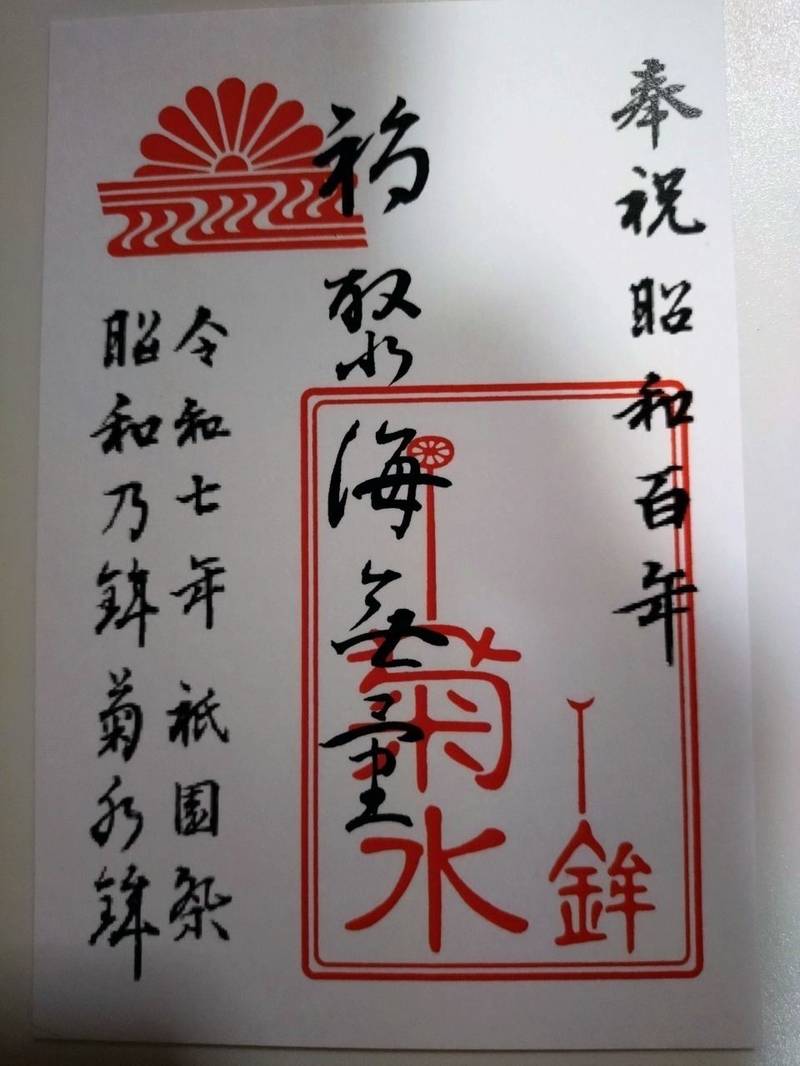 奉祝昭和百年
福聚海無量
菊水
鉾
令和七年 祇園祭
昭和乃鉾 菊水鉾